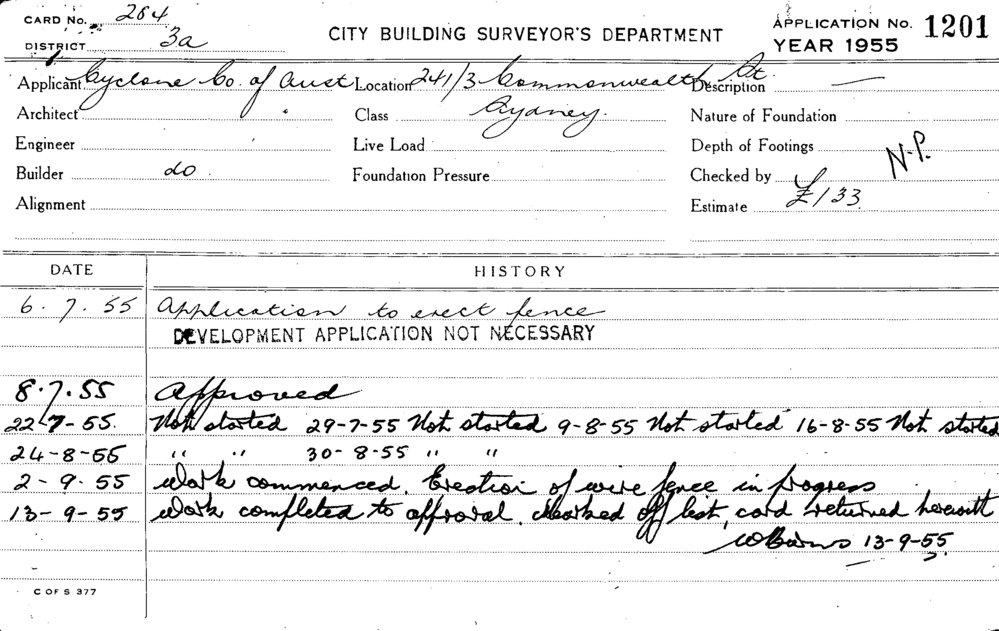 CARD No. 264
DISTRICT 3a
CITY BUILDING SURVEYOR'S DEPARTMENT
APPLICATION No. 1201
YEAR 1955
Applicant Cyclone Co. of Aust Location 241/3 Commonwealth St. Description —
Architect " Class Sydney. Nature of Foundation
Engineer Live Load Depth of Footings N.P.
Builder do. Foundation Pressure Checked by
Alignment Estimate £133
DATE HISTORY
6.7.55 Application to erect fence
DEVELOPMENT APPLICATION NOT NECESSARY
8.7.55 Approved
22-7-55. Not started 29-7-55 Not started 9-8-55 Not started 16-8-55 Not started
24-8-55 " " 30-8-55 " "
2-9.55 Work commenced. Erection of wire fence in progress
13-9-55 Work completed to approval. Marked off list, card returned herewith
13-9-55.
C OF S 377